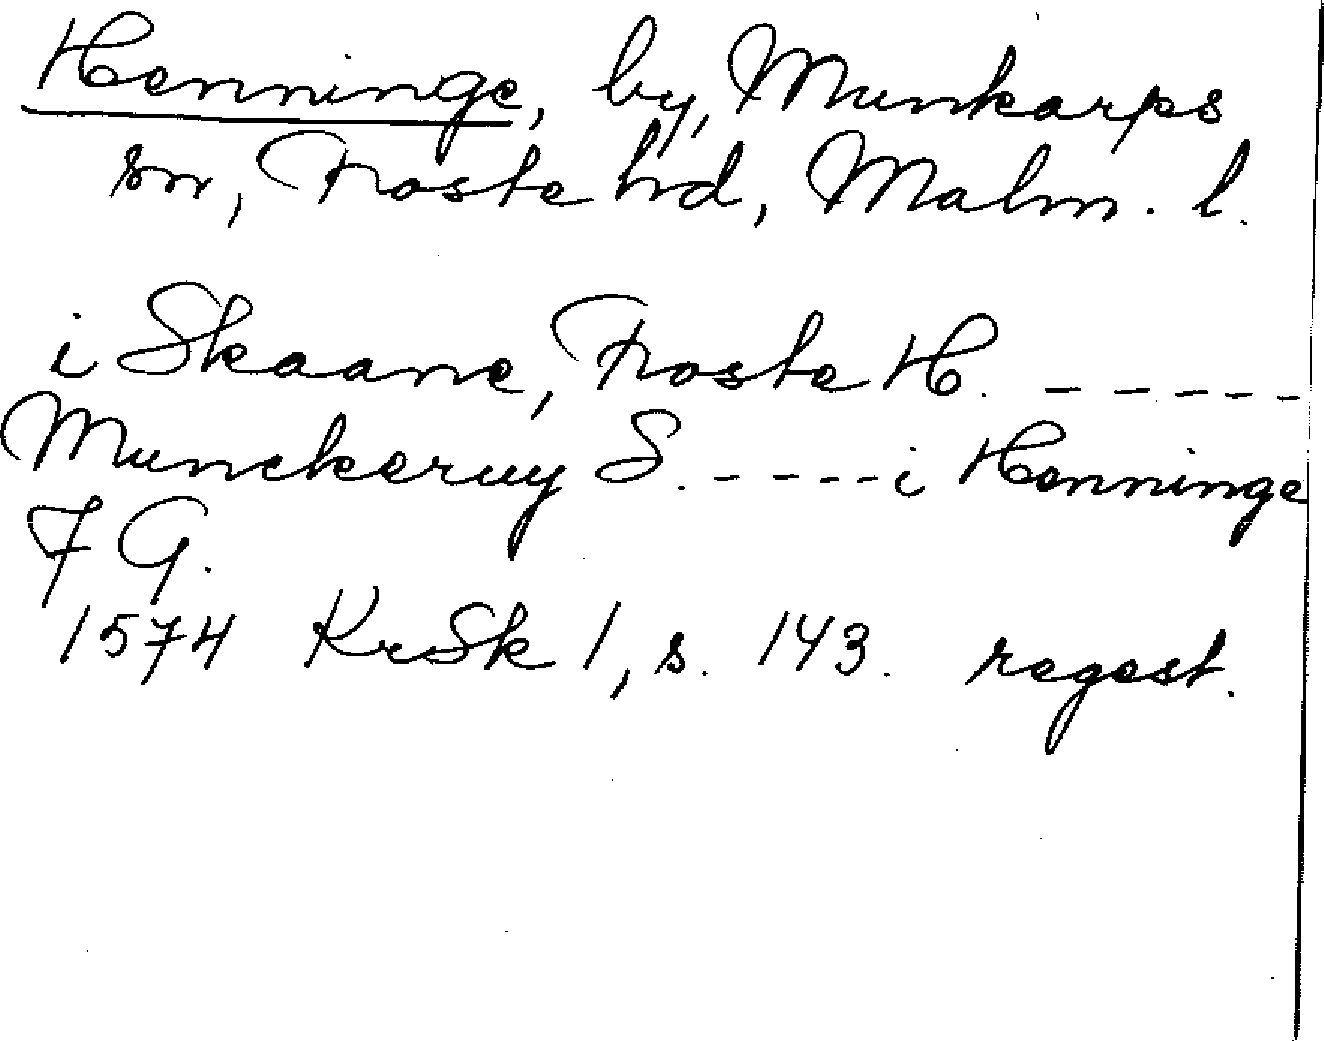 Henninge, by, Munkarps
sn, Frosta hd, Malm. l.
i Skaane, Froste H. - - - - -
Munckeruy S. - - - - - i Henninge
7 G.
1574 KrSk 1, s. 143. regest.